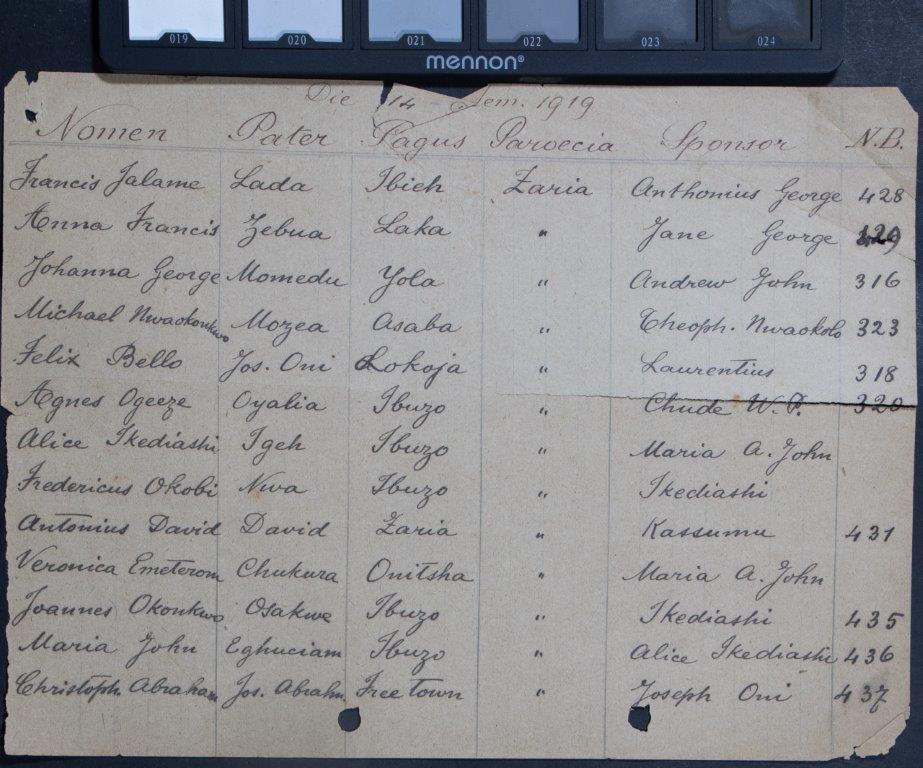 019 020 021 022 023 024
mennon®
Die 14 1919
Nomen Pater Pagus Paroecia Sponsor N.B.
Francis Jalame Lada Ibieh Zaria Anthonius George 428
Anna Francis Zebua Laka " Jane George
Johanna George Momedu Yola " Andrew John 316
Michael Nwaokonkwo Mozea Asaba " Theoph. Nwaokolo 323
Felix Bello Jos. Oni Lokoja " Laurentius 318
Agnes Ogeeze Oyalia Ibuzo " Chude W. P. 320
Alice Ikediashi Igeh Ibuzo " Maria A. John
Fredericus Okobi Nwa Ibuzo " Ikediashi
Antonius David David Zaria " Kassumu 431
Veronica Emeterom Chukura Onitsha " Maria A. John
Joannes Okonkwo Osakwe Ibuzo " Ikediashi 435
Maria John Eghuciam Ibuzo " Alice Ikediashi 436
Christoph Abraham Jos. Abrahm Free town " Joseph Oni 437